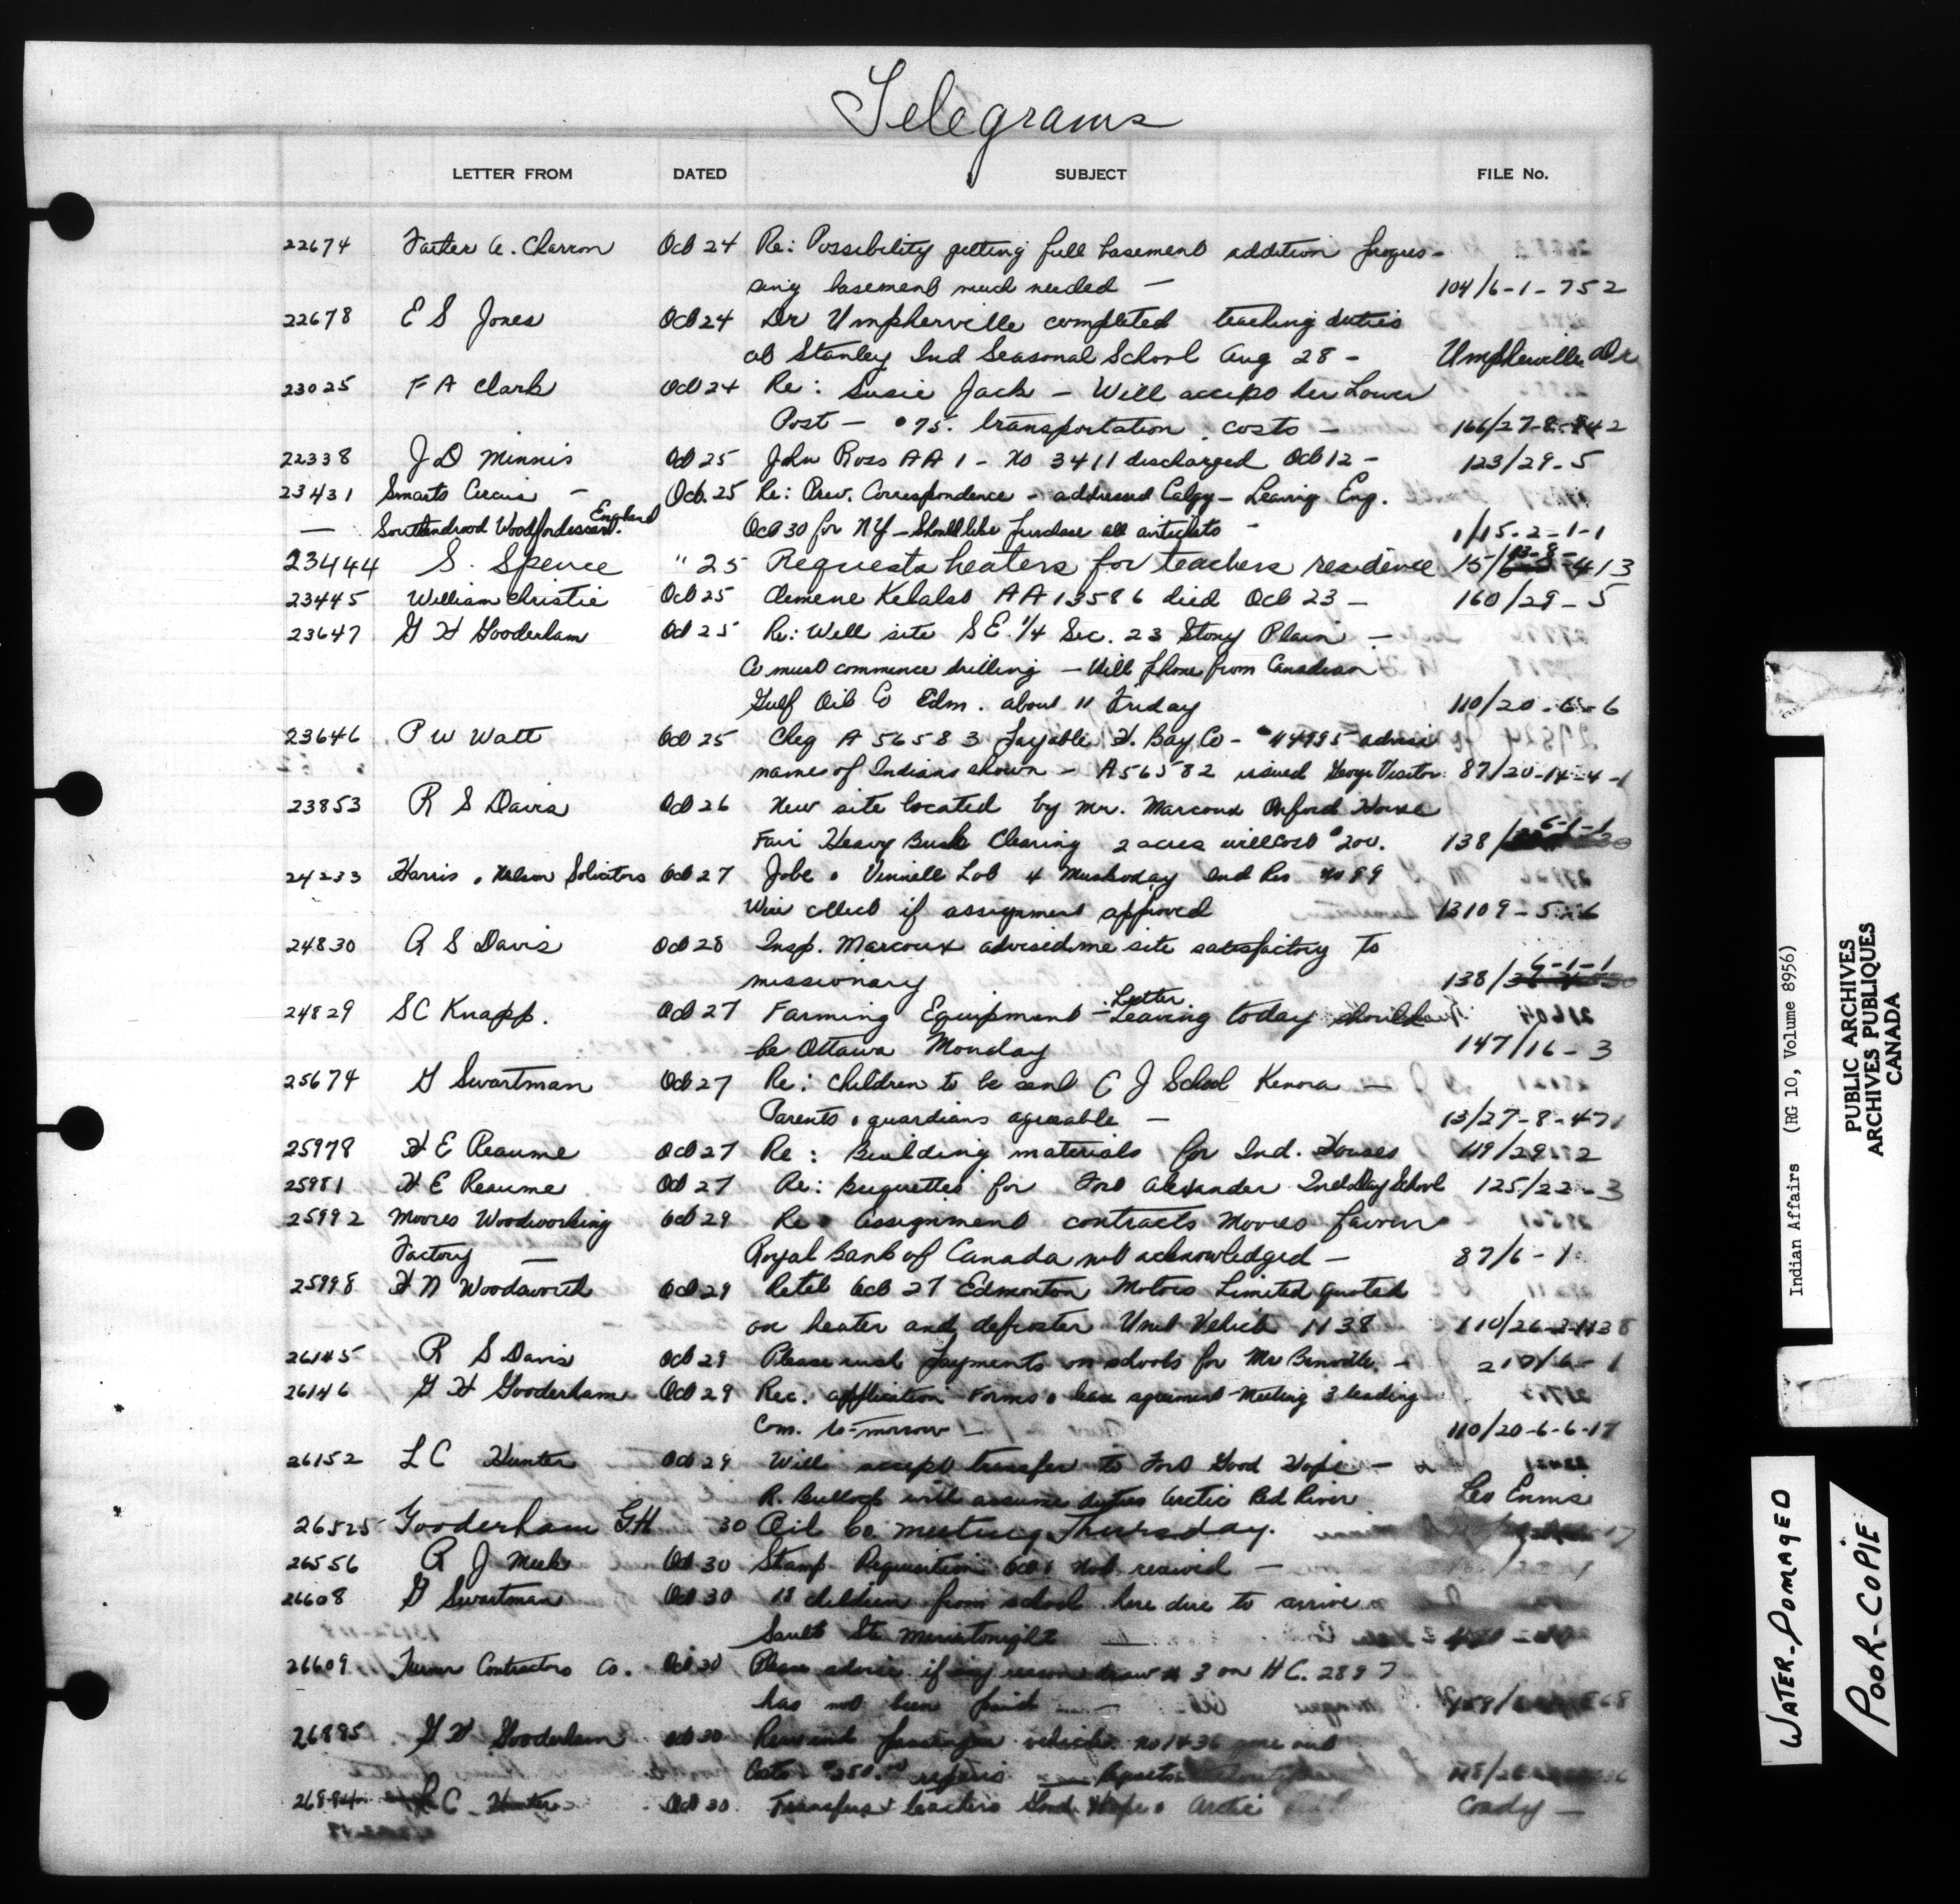 Telegrams
LETTER FROM DATED SUBJECT FILE No.
22674 Father A. Charron Oct 24 Re: Possibility getting full basement addition progres-
sing basement much needed — 104/6-1-752
22678 E S Jones Oct 24 Dr Umpherville completed teaching duties
at Stanley Ind Seasonal School Aug 28 - Umpherville Dr
23025 F A Clark Oct 24 Re: Susie Jack - Will accept her Lower
Post - $75. transportation costs - 166/27-8-842
22338 J D Minnis Oct 25 John Ross AA 1 - No 3411 discharged Oct 12 - 123/29-5
23431 Smarts Circus - Oct. 25 Re: Prev. Correspondence - addressed Calgy - Leaving Eng.
— Woodfordessex. England Oct 30 for NY - Should like purchase all - 1/15-2-1-1
23444 S. Spence " 25 Requests heaters for teachers residence 15/ 413
23445 William Christie Oct 25 Clemene AA 13586 died Oct 23 - 160/29-5
23647 G H Gooderham Oct 25 Re: Well site S E. 1/4 Sec. 23 Stony Plain -
Co must commence drilling - Will phone from Canadian
Gulf Oil Co Edm. about 11 Friday 110/20-6-6
23646 P W Watt Oct 25 Cheq A 56583 payable H. Bay Co - advise
names of Indians shown - A56582 issued George Visitor 87/20-14-4-1
23853 R S Davis Oct 26 New site located by Mr. Marcoux Oxford House
Fair Heavy Bush Clearing 2 acres will cost $200. 138/ 6-1-1
24233 Harris & Nelson Solicitors Oct 27 Jobe & Vennell Lot 4 Muskoday Ind Res No 99
Wire collect if assignment approved 13109-5
24830 R S Davis Oct 28 Insp. Marcoux advised me site satisfactory to
missionary 138/ 6-1-1
24829 S C Knapp. Oct 27 Farming Equipment - Letter Leaving today should
be Ottawa Monday 147/16-3
25674 G Swartman Oct 27 Re: Children to be sent C J School Kenora -
Parents & guardians agreeable - 13/27-8-471
25978 H E Reaume Oct 27 Re: Building materials for Ind. Houses 119/29-2
25981 H E Reaume Oct 27 Re: Briquettes for Fort Alexander Ind Day School 125/22-3
25992 Moores Woodworking Oct 29 Re: Assignment contracts Moores favour
Factory — Royal Bank of Canada not acknowledged - 87/6-1
25998 H N Woodsworth Oct 29 Retel Oct 27 Edmonton Motors Limited quoted
on heater and defroster Unit Vehicle 1138 110/26-2-1138
26145 R S Davis Oct 29 Please rush payments on schools for Mr - 217/6-1
26146 G H Gooderham Oct 29 Rec. application Forms & lease agreement Meeting 3 leading
Com. to-morrow - 110/20-6-6-17
26152 L C Hunter Oct 29 Will accept transfer to Fort Good Hope -
R. Bullock will assume duties Arctic Red River Leo Ennis
26525 Gooderham G.H 30 Oil Co. meeting Thursday. 17
26556 R J Meek Oct 30 Stamp Requisition Oct 1 not received -
26608 G Swartman Oct 30 18 children from school here due to arrive
Sault Ste Marie tonight —
26609 Turner Contractors Co. Oct 30 Please advise if any reason draw # 3 on H C. 2897
has not been paid -
26895 G H Gooderham Oct 30 passenger vehicle No 1436
Costs $250.00 repairs
26894 L C Hunter Oct 30 Transfers teachers Good Hope & Arctic Coady -
Indian Affairs (RG 10, Volume 8956)
PUBLIC ARCHIVES
ARCHIVES PUBLIQUES
CANADA
WATER-DOMAGED
POOR-COPIE